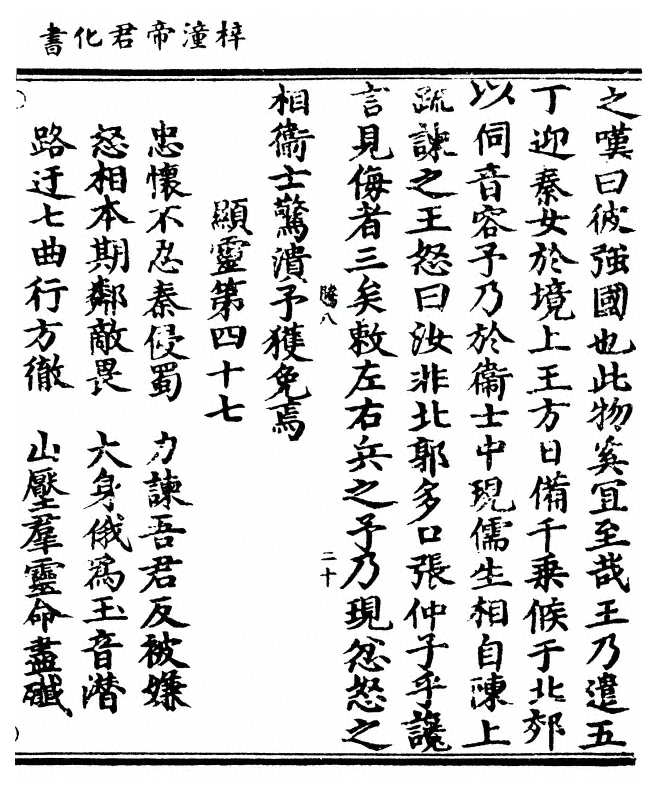 梓潼帝君化書
之嘆曰彼強國也此物奚宜至哉王乃遣五
丁迎秦女於境上王方日備千乗候于北郊
以伺音容予乃於衞士中現儒生相自陳上
䟽諫之王怒曰汝非北郭多口張仲子乎讒
言見侮者三矣敕左右兵之予乃現忿怒之
相衞士驚潰予獲免焉
騰八
二十
顯靈第四十七
忠懷不忍秦侵蜀 力諫吾君反被嫌
怒相本期鄰敵畏 大身俄寫玉音潜
路迂七曲行方徹 山壓羣靈命盡殲